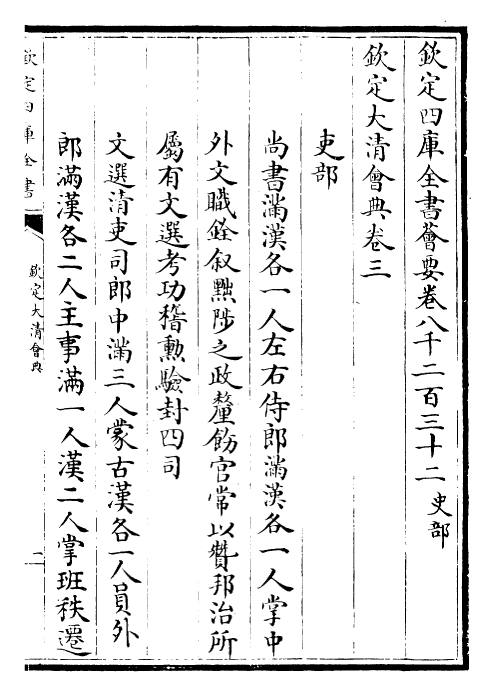 欽定四庫全書薈要卷八千二百三十二 史部
欽定大清會典卷三
吏部
尚書滿漢各一人左右侍郎滿漢各一人掌中
外文職銓叙黜陟之政釐飭官常以贊邦治所
屬有文選考功稽勳驗封四司
文選清吏司郎中滿三人蒙古漢各一人員外
郎滿漢各二人主事滿一人漢二人掌班秩遷
欽定四庫全書
欽定大清會典